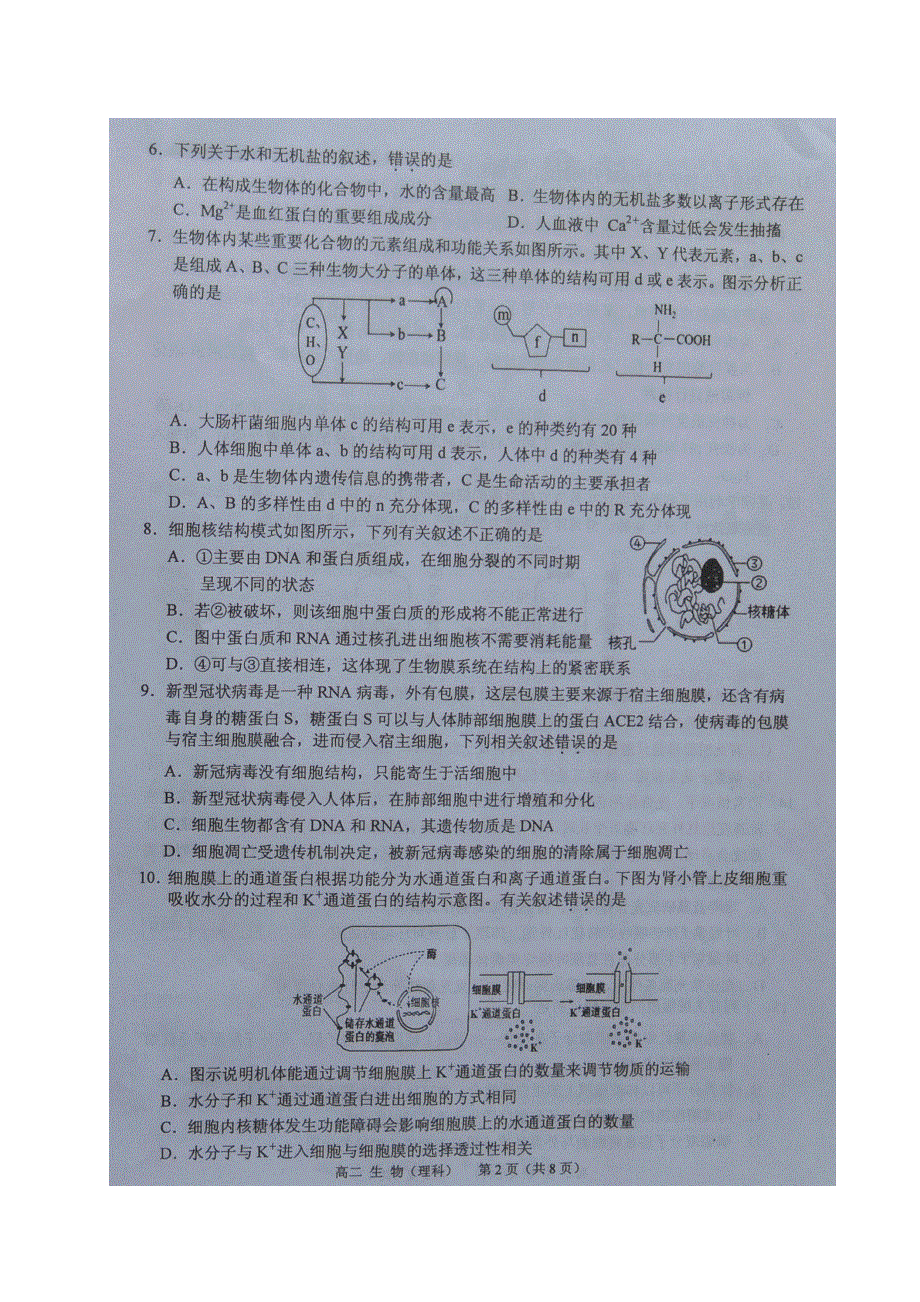 6．下列关于水和无机盐的叙述，错误的是
A．在构成生物体的化合物中，水的含量最高 B．生物体内的无机盐多数以离子形式存在
C．Mg²⁺是血红蛋白的重要组成成分 D．人血液中 Ca²⁺含量过低会发生抽搐
7．生物体内某些重要化合物的元素组成和功能关系如图所示。其中 X、Y 代表元素，a、b、c
是组成 A、B、C 三种生物大分子的单体，这三种单体的结构可用 d 或 e 表示。图示分析正
确的是
C、
H、
O
X
Y
a
A
b
B
c
C
m
f
n
d
NH₂
R—C—COOH
H
e
A．大肠杆菌细胞内单体 c 的结构可用 e 表示，e 的种类约有 20 种
B．人体细胞中单体 a、b 的结构可用 d 表示，人体中 d 的种类有 4 种
C．a、b 是生物体内遗传信息的携带者，C 是生命活动的主要承担者
D．A、B 的多样性由 d 中的 n 充分体现，C 的多样性由 e 中的 R 充分体现
8．细胞核结构模式如图所示，下列有关叙述不正确的是
A．①主要由 DNA 和蛋白质组成，在细胞分裂的不同时期
呈现不同的状态
B．若②被破坏，则该细胞中蛋白质的形成将不能正常进行
C．图中蛋白质和 RNA 通过核孔进出细胞核不需要消耗能量
D．④可与③直接相连，这体现了生物膜系统在结构上的紧密联系
④
③
②
核糖体
核孔
①
9．新型冠状病毒是一种 RNA 病毒，外有包膜，这层包膜主要来源于宿主细胞膜，还含有病
毒自身的糖蛋白 S，糖蛋白 S 可以与人体肺部细胞膜上的蛋白 ACE2 结合，使病毒的包膜
与宿主细胞膜融合，进而侵入宿主细胞，下列相关叙述错误的是
A．新冠病毒没有细胞结构，只能寄生于活细胞中
B．新型冠状病毒侵入人体后，在肺部细胞中进行增殖和分化
C．细胞生物都含有 DNA 和 RNA，其遗传物质是 DNA
D．细胞凋亡受遗传机制决定，被新冠病毒感染的细胞的清除属于细胞凋亡
10．细胞膜上的通道蛋白根据功能分为水通道蛋白和离子通道蛋白。下图为肾小管上皮细胞重
吸收水分的过程和 K⁺通道蛋白的结构示意图。有关叙述错误的是
水通道
蛋白
酶
细胞核
储存水通道
蛋白的囊泡
细胞膜
K⁺通道蛋白
K⁺
细胞膜
K⁺通道蛋白
K⁺
A．图示说明机体能通过调节细胞膜上 K⁺通道蛋白的数量来调节物质的运输
B．水分子和 K⁺通过通道蛋白进出细胞的方式相同
C．细胞内核糖体发生功能障碍会影响细胞膜上的水通道蛋白的数量
D．水分子与 K⁺进入细胞与细胞膜的选择透过性相关
高二 生 物（理科） 第 2 页（共 8 页）